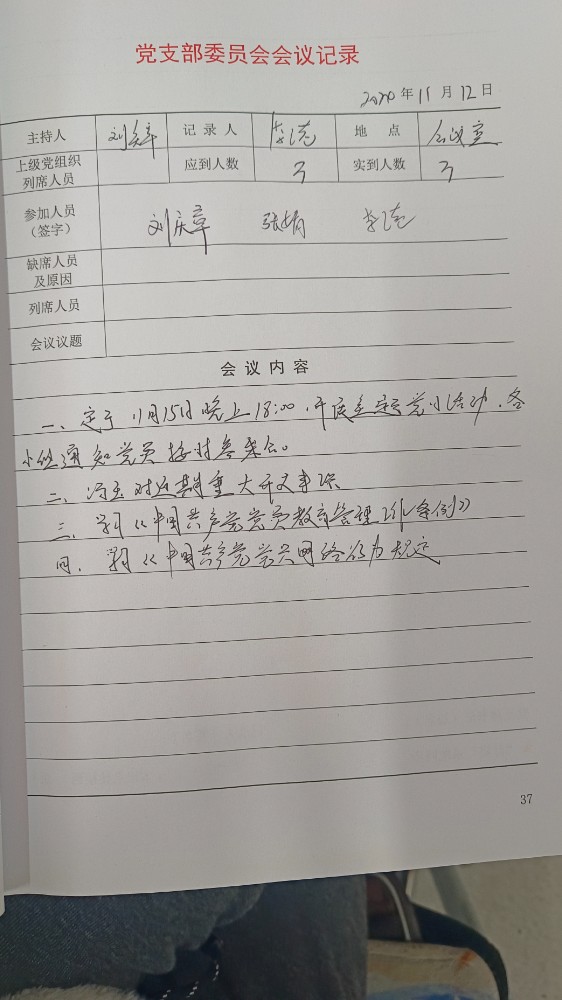 党支部委员会会议记录
2020年11月12日
主持人 刘庆章 记录人 李浩 地点 会议室
上级党组织列席人员 应到人数 3 实到人数 3
参加人员（签字） 刘庆章 张娟 李浩
缺席人员及原因
列席人员
会议议题
会议内容
一、定于11月15日晚上18:00，开展主题党小活动，各
小组通知党员按时参加会。
二、讨论近期重大开支事项
三、学习《中国共产党党员教育管理工作条例》
四、学习《中国共产党党员网络行为规定
37